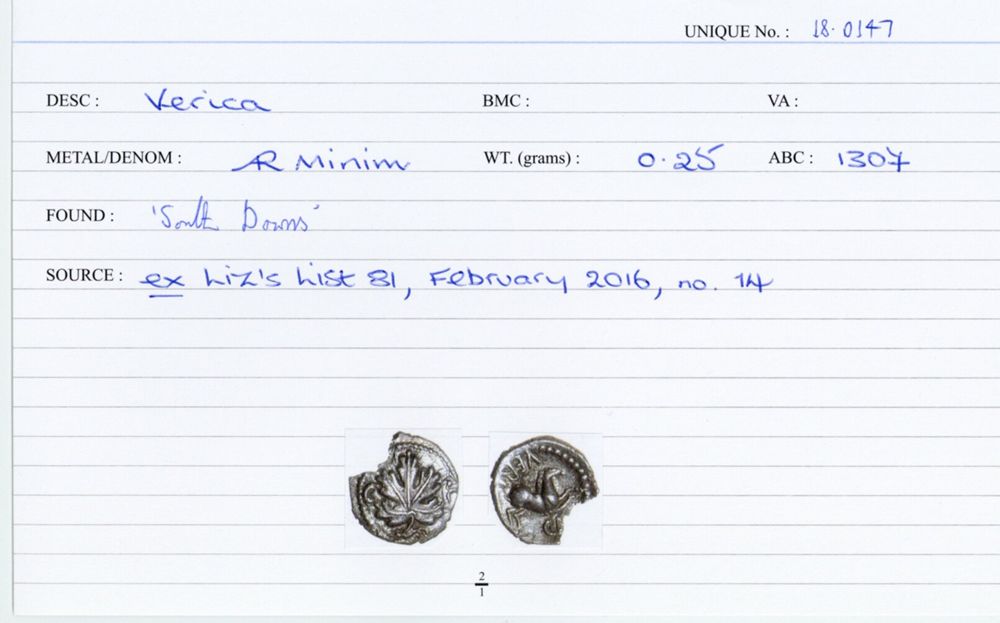 UNIQUE No. : 18.0147
DESC : Verica BMC : VA :
METAL/DENOM : AR Minim WT. (grams) : 0.25 ABC : 1307
FOUND : 'South Downs'
SOURCE : ex Liz's List 81, February 2016, no. 14
VERI
2
1